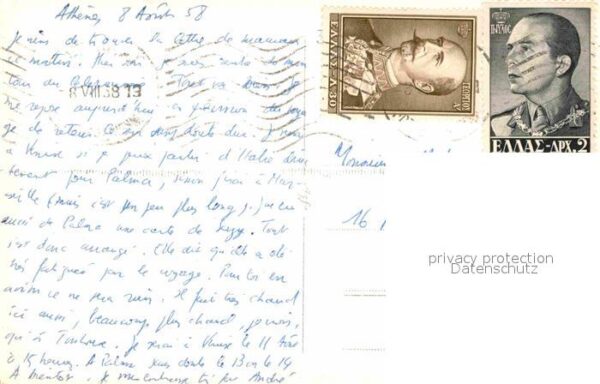 Athènes 8 Août 58
Je viens de trouver la lettre de maman
ce matin. Hier soir je suis rentré de mon
tour du Péloponnèse. Tout va bien. Je
me repose aujourd'hui en prévision du voya
ge de retour. Ce sera sans doute dur. Je
à Venise si je peux partir d'Italie
pour Palma, sinon j'irai à Mar
seille mais c'est un peu plus long. J'ai eu
aussi de Palma une carte de Tout
est donc arrangé. Elle dit qu'elle a été
très fatiguée par le voyage. en
avion ce ne sera rien. Il fait très chaud
ici aussi, beaucoup plus chaud, je crois,
qu'à Toulouse. Je serai à Venise le 11
à 15 heures. A Palma sans doute le 13 ou le 14
A bientôt. Je André
8 VIII 58 13
ΕΛΛΑΣ
ΠΑΥΛΟΣ
ΕΛΛΑΣ-ΔΡΧ.2
Monsieur
16
privacy protection
Datenschutz